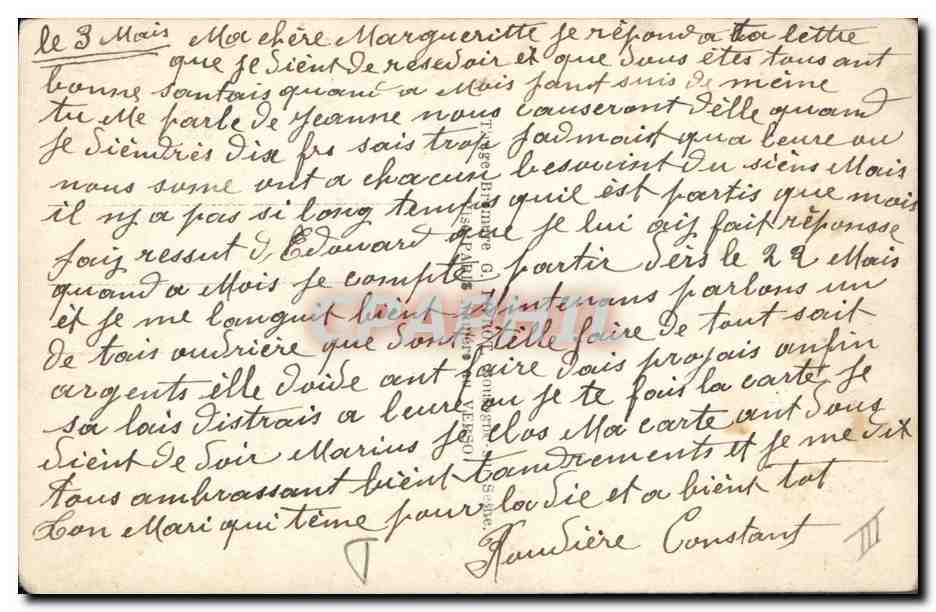 le 3 Mais Ma chère Margueritte je répond a ta lèttre
que je diènt de resedoir et que dous êtes tous ant
bonne santais quand a Mois fant suis de mème
tu Me parle de Jeanne nous causeront d'èlle quand
je dièndrès dix frs sais trop jadmait qua leure ou
nous some ont a chacun besouint du sièns Mais
il ny a pas si long temps quil est partis que mois
jaiz ressut d, Edouard que je lui aiz fait réponsse
quand a Mois je compte partir dèrs le 22 Mais
et je me languit bient Maintenans parlons un
de tais oudrière que dont t'èlle faire de tout sait
argents èlle doide ant faire dais projais anfin
sa lais distrais a leure ou je te fais la carte je
dièint de doir Marius je clos Ma carte ant dous
tous ambrassant bient tandrements et je me dit
ton Mari qui tème pour la die et a bièint tot
Roudière Constant
Tirage Bromure G.
Visa PARIS
VERSO
III
CPARAMA